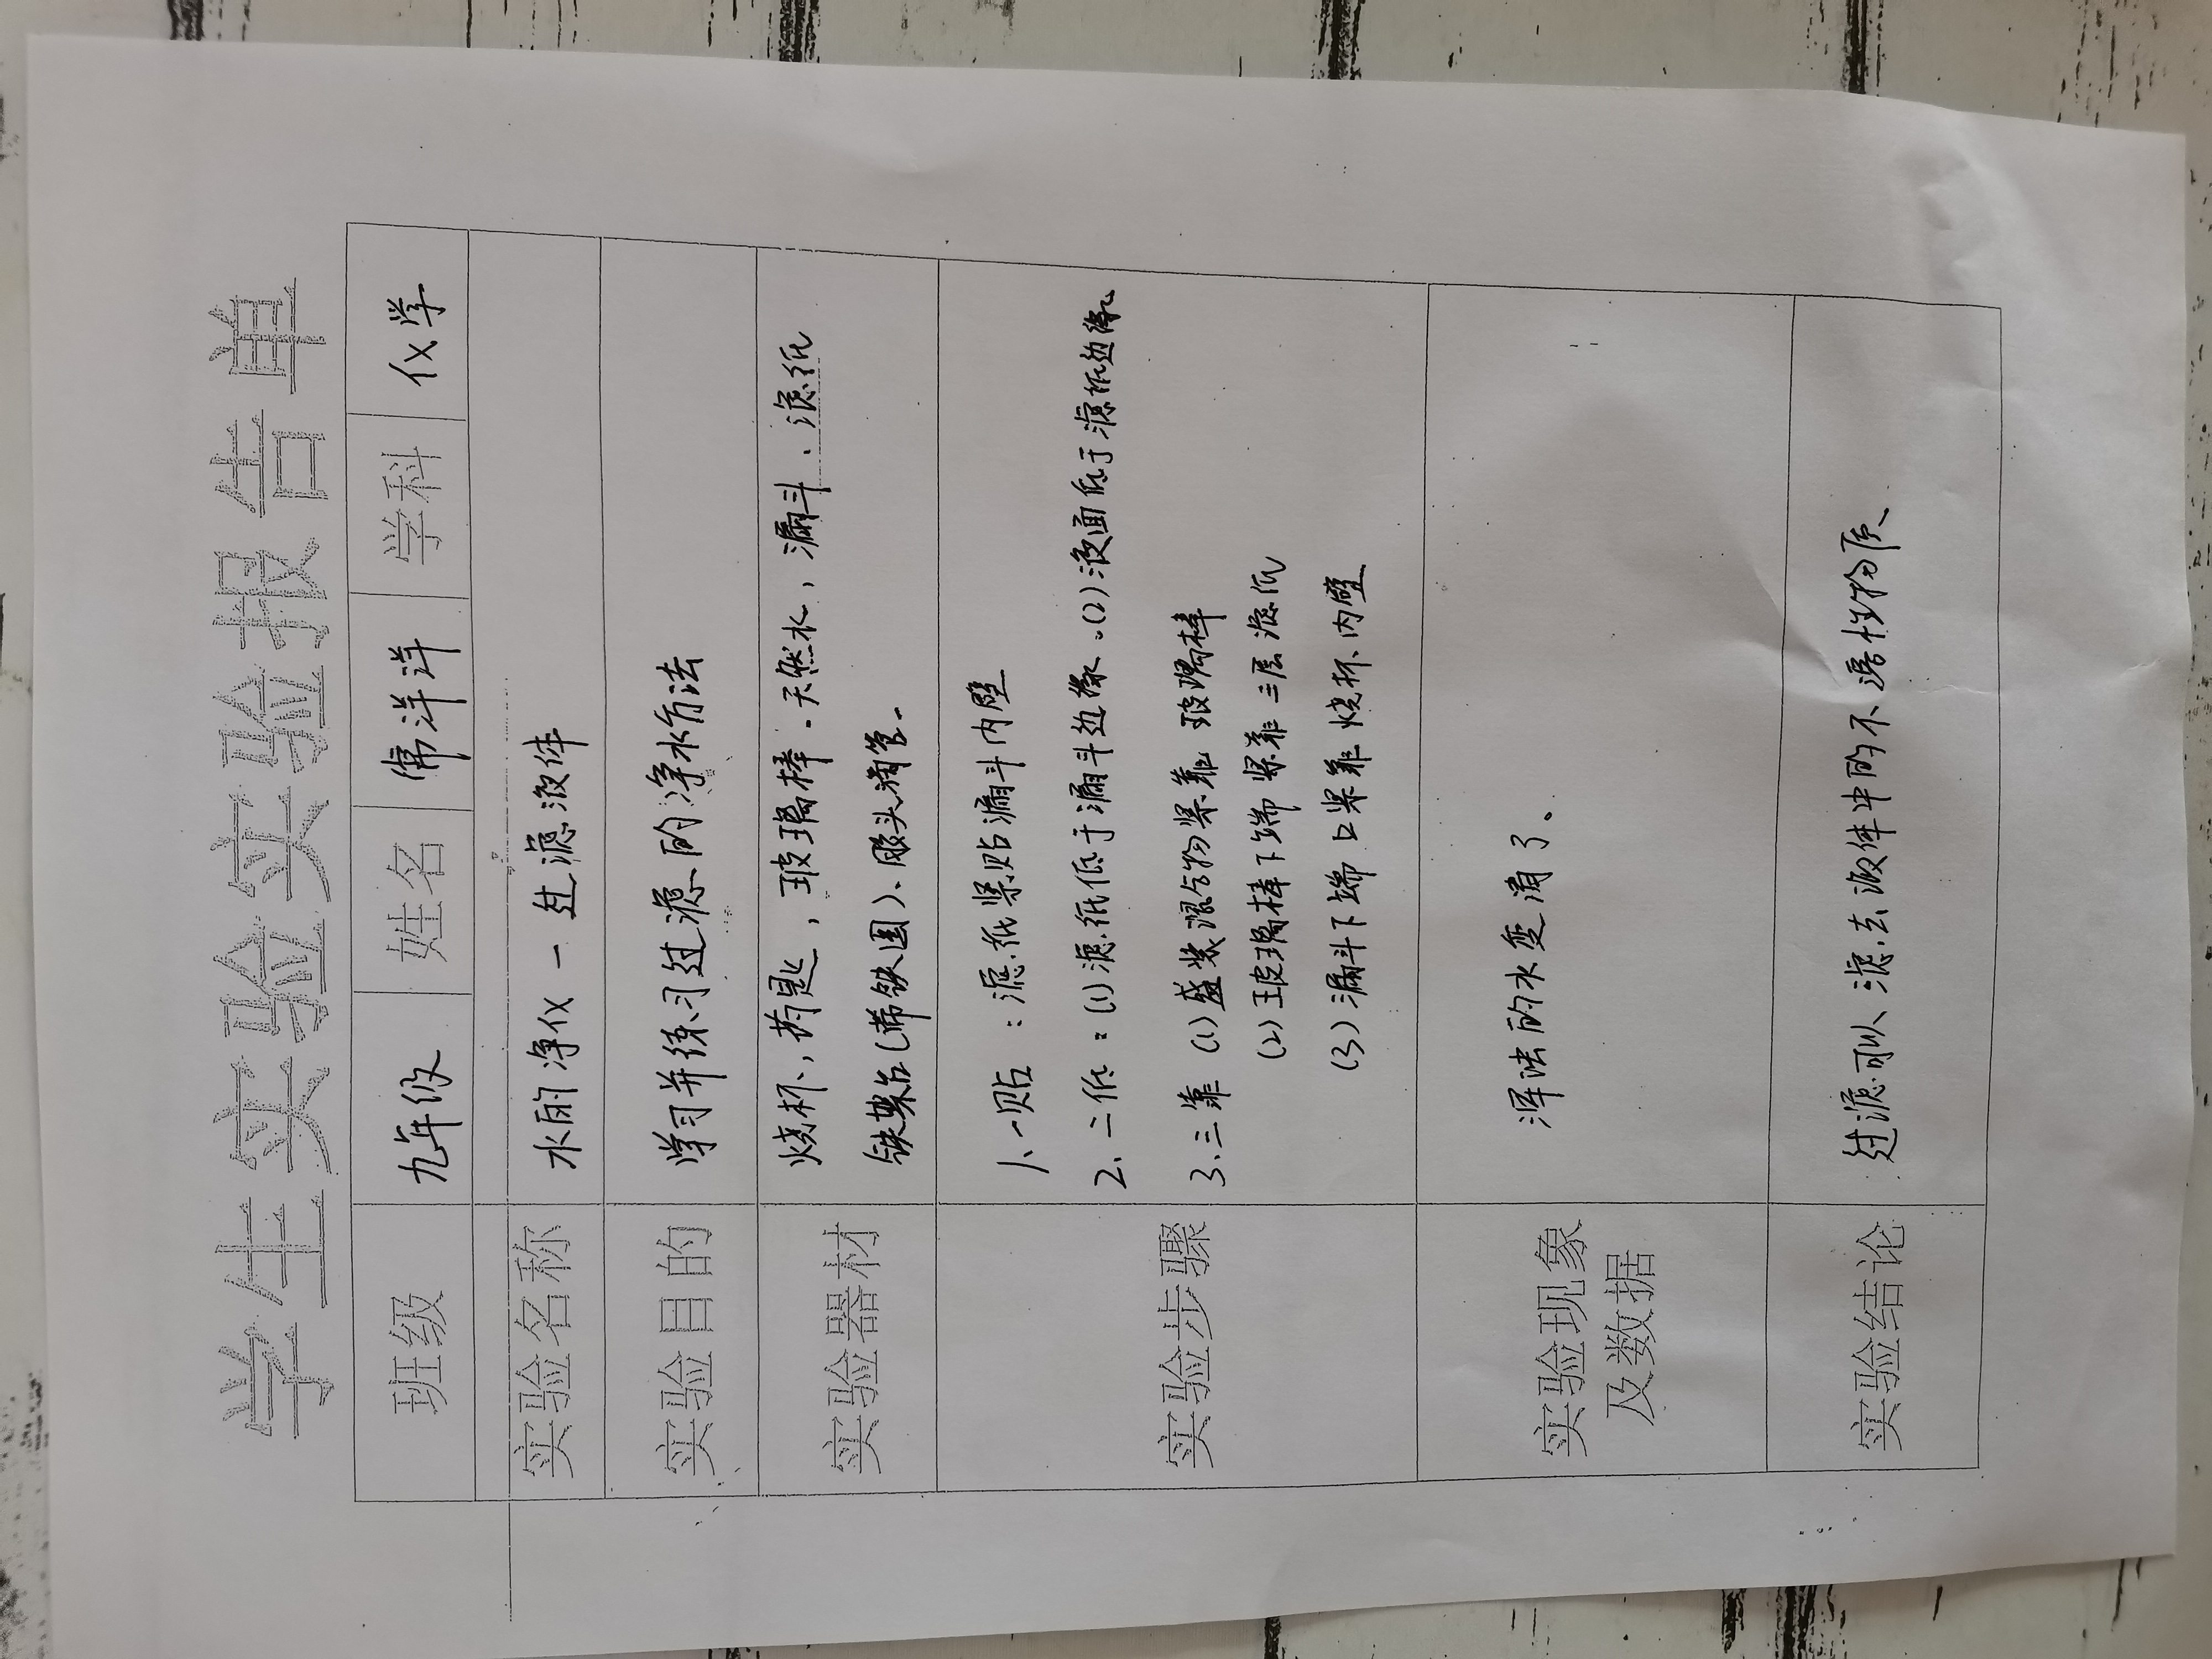 学生实验实验报告单
班级 九年级 姓名 常洋洋 学科 化学
实验名称 水的净化一过滤液体
实验目的 学习并练习过滤的净水方法
实验器材 烧杯、药匙,玻璃棒、天然水,漏斗、滤纸
铁架台(带铁圈)、胶头滴管、
实验步骤
1、一贴:滤纸紧贴漏斗内壁
2、二低:(1)滤纸低于漏斗边缘、(2)液面低于滤纸边缘
3、三靠 (1)盛装混合物紧靠玻璃棒
(2)玻璃棒下端紧靠三层滤纸
(3)漏斗下端口紧靠烧杯内壁
实验现象
及数据
浑浊的水变清了、
实验结论 过滤可以滤去液体中的不溶性物质